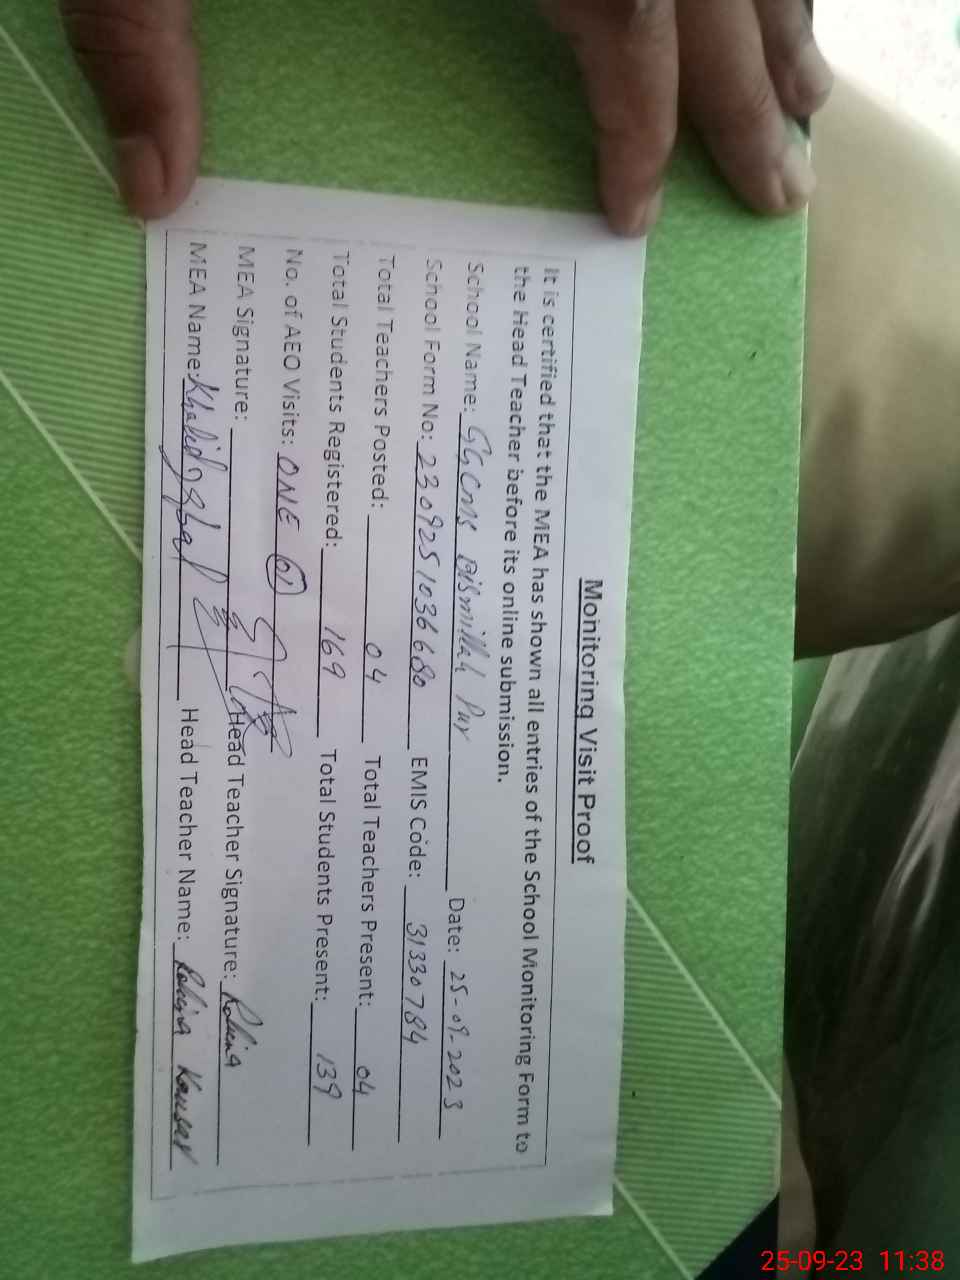 Monitoring Visit Proof
It is certified that the MEA has shown all entries of the School Monitoring Form to
the Head Teacher before its online submission.
School Name: GGCMS Bismillah Pur Date: 25-09-2023
School Form No: 230925 1036680 EMIS Code: 31330784
Total Teachers Posted: 04 Total Teachers Present: 04
Total Students Registered: 169 Total Students Present: 139
No. of AEO Visits: ONE 01
MEA Signature: Head Teacher Signature: Robina
MEA Name: Khalid Iqbal Head Teacher Name: Robina Kousar
25-09-23 11:38